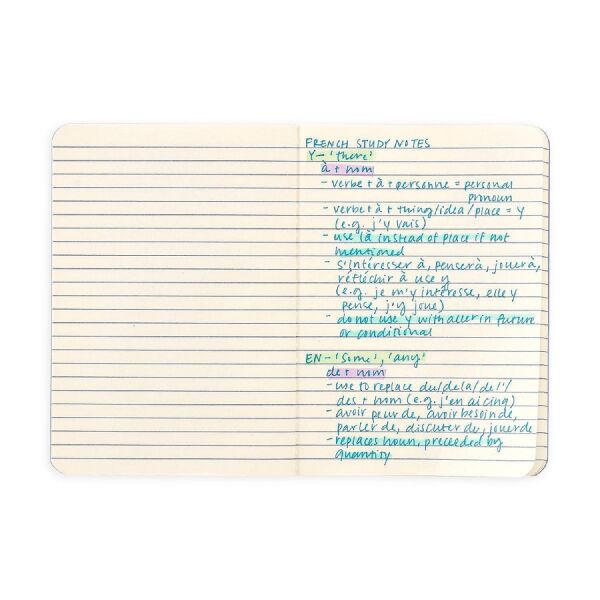 FRENCH STUDY NOTES
Y - 'there'
à + nom
- verbe + à + personne = personal
pronoun
- verbe + à + thing/idea/place = Y
(e.g. j'y vais)
- use là instead of place if not
mentioned
- s'intéresser à, penser à, jouer à,
réfléchir à use y
(e.g. je m'y intéresse, elle y
pense, j'y joue)
- do not use y with aller in future
or conditional
EN - 'some', 'any'
de + nom
- use to replace du/de la/de l'/
des + nom (e.g. j'en ai cinq)
- avoir peur de, avoir besoin de,
parler de, discuter de, jouer de
- replaces noun, preceeded by
quantity